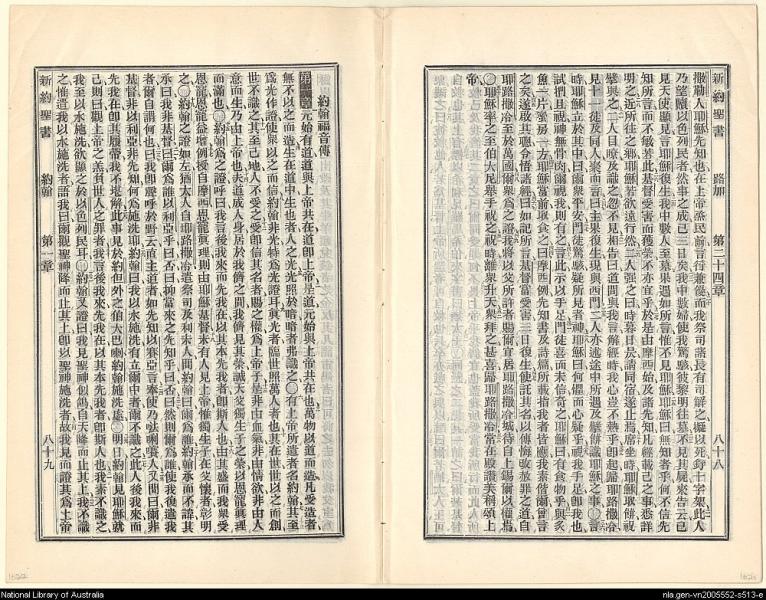 新約聖書 路加 第二十四章 八十八
撒勒人耶穌先知也在上帝烝民前言行兼優而我祭司諸長有司解之擬以死釘十字架此人
乃望贖以色列民者然事之成已三日矣我中數婦使我駭彼黎明往墓不見其屍來告云已
見天使顯見言耶穌復生我中數人至墓果遇如所言惟不見耶穌耶穌曰無知者乎何不信先
知所言而不敏若此基督受害而獲榮不亦宜乎於是由摩西始及諸先知凡經載己之事悉詳
明之近所往之鄉耶穌若欲遠行然二人強之曰時暮日昃請同宿遂止焉席坐時耶穌取餅祝
擘與之二人目瞭及識之忽不見相告曰途間與我言解經時我心豈不熱乎即起歸耶路撒冷
見十一徒及同人集而言曰主果復生現與西門二人亦述途中所遇及擘餅識耶穌之事〇言
時耶穌立於其中曰爾眾平安門徒驚駭疑所見者神耶穌曰何懼而心疑乎視我手足即我也
試捫且視神無骨肉爾視我則有之言此示以手足門徒喜而未信奇之耶穌曰有食物乎與炙
魚一片蜜房一方耶穌當前取食之曰摩西例先知書及詩篇所載指我者皆應我素偕爾曾言
之矣遂啟其聰令悟諸經曰如記所言基督當受害三日復生使託其名以傳悔改赦罪之道自
耶路撒冷至於萬國爾眾為之證我將以父所許者賜爾宜居耶路撒冷城待自上錫爾以權焉
〇耶穌率之至伯大尼舉手祝之祝時離眾升天眾拜之甚喜歸耶路撒冷常在殿讚美稱頌上
帝
新約聖書 約翰 第一章 八十九
約翰福音傳
第一章 元始有道道與上帝共在道即上帝是道元始與上帝共在也萬物以道而造凡受造者
無不以之而造生在道中生也者人之光光照於暗暗者弗識之〇有上帝所遣者名約翰其至
為光作證使眾以之而信約翰非光特為光證耳真光者臨世照萬人者也其在世世以之而創
世不識之其至己地人不受之受即信其名者賜之權為上帝子是非由血氣非由情欲非由人
意而生乃由上帝也夫道成人身居於我儕之間我儕見其榮誠天父獨生子之榮以恩寵真理
而滿也〇約翰為之證呼曰我言後我來而先我在以其本先我者即斯人也由其盛而我眾受
恩寵恩寵益增例授自摩西恩寵真理則由耶穌基督未有人見上帝惟獨生子在父懷者彰明
之〇約翰之證如左猶太人自耶路撒冷遣祭司及利未人問約翰曰爾為誰約翰承而不諱其
承曰我非基督曰爾為誰以利亞乎曰否曰即當來之先知乎曰否曰然則爾為誰使我復遣我
者爾自謂何也曰我即野有聲呼於野云直主道者如先知以賽亞言奉使乃𠵽唎㘔人又問曰爾非
基督非以利亞非先知何為施洗耶約翰曰我以水施洗有立爾中者爾不識之此人後我來而
先我在即其履帶我不堪解此事見於約但外之伯大巴喇約翰施洗處〇明日約翰見耶穌就
己則曰觀上帝之羔負世人之罪者我言後我來先我在以其本先我者即斯人也我素不識之
我至以水施洗欲顯之於以色列民耳約翰又證曰我見聖神似鴿自天降而止其上我不識
之惟遣我以水施洗者語我曰爾觀聖神降而止其上即以聖神施洗者故我見而證其為上帝
National Library of Australia
nla.gen-vn2005552-s513-e